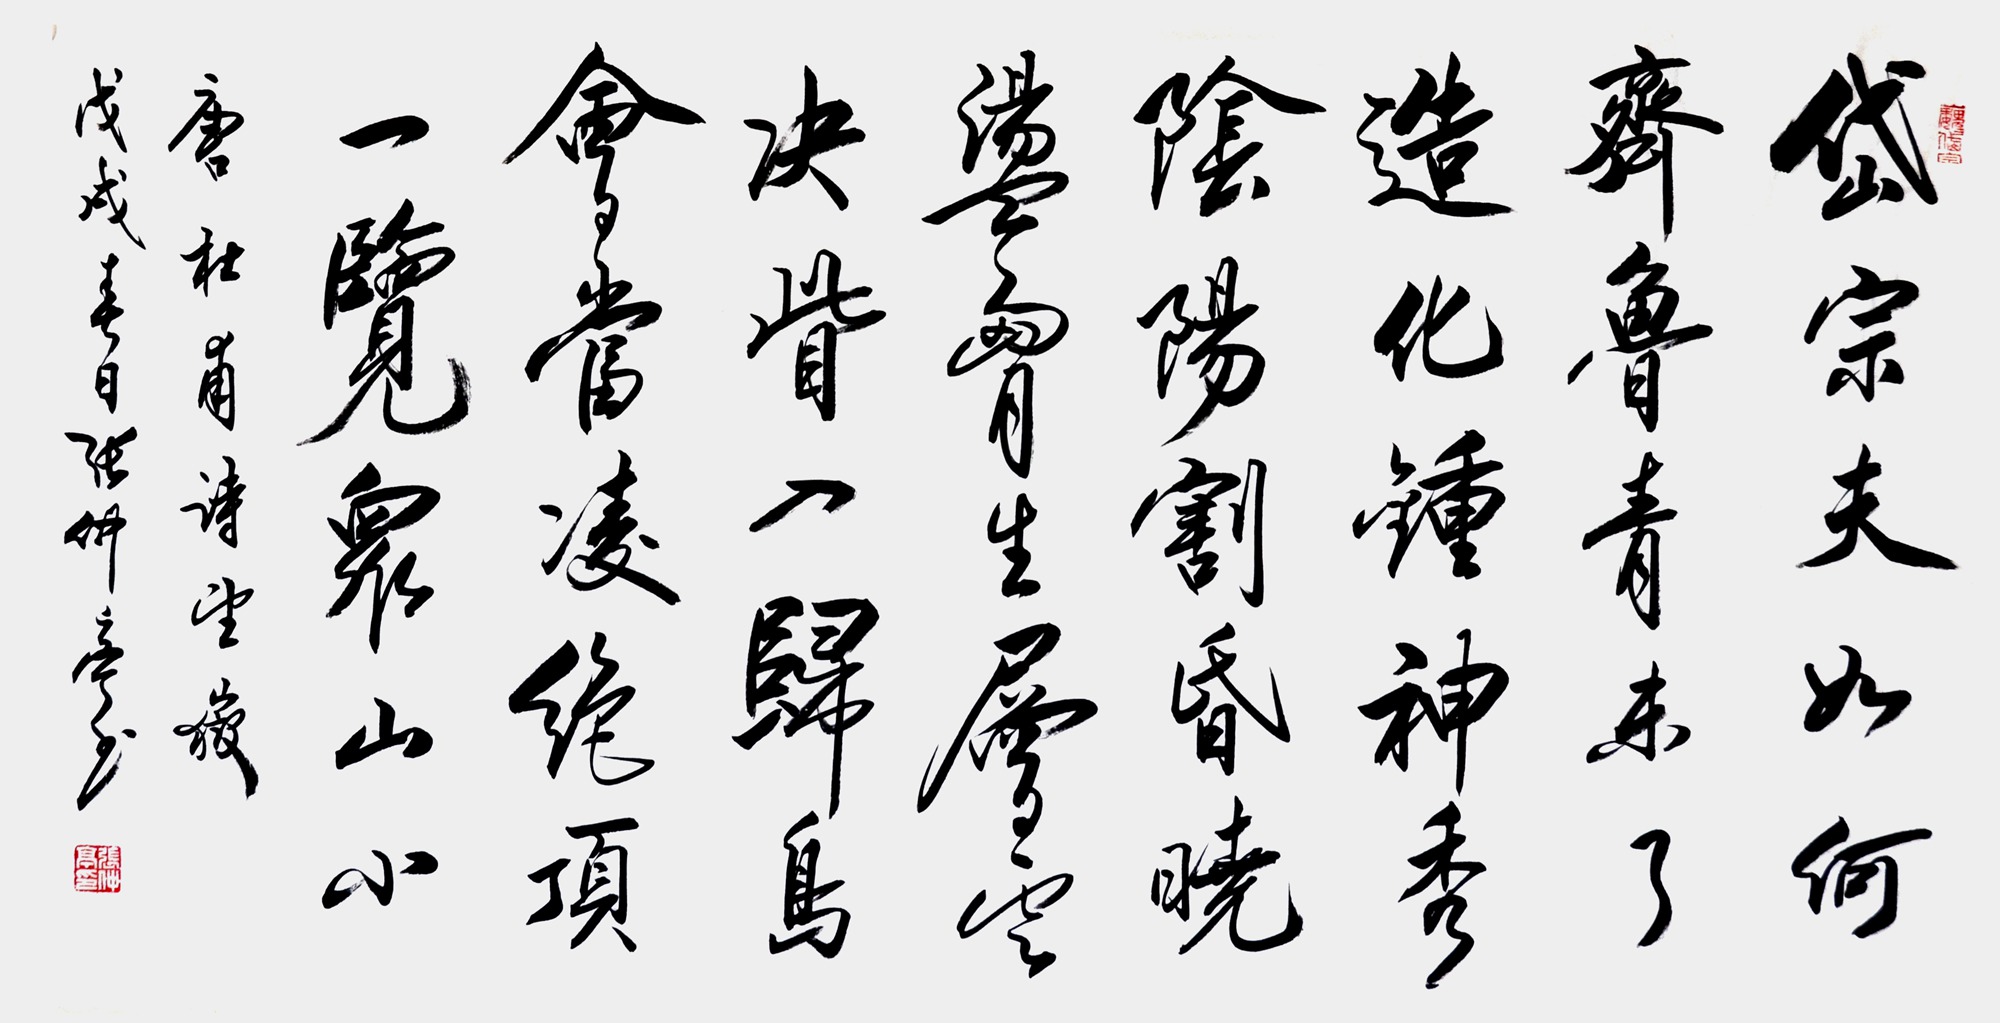 岱宗夫如何
齊魯青未了
造化鍾神秀
陰陽割昏曉
盪胷生層雲
决眥入歸鳥
會當凌絶頂
一覽眾山小
唐杜甫詩望嶽
戊戌春日張仲亭書
張仲亭印